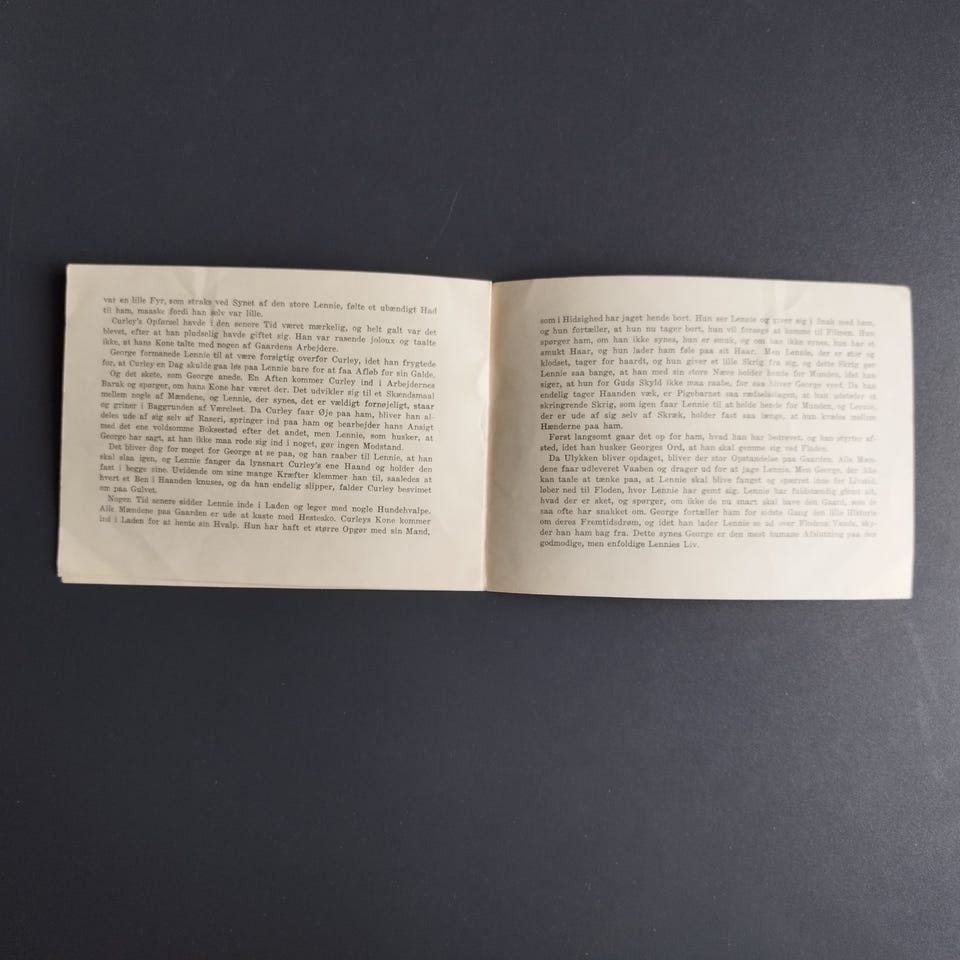 var en lille Fyr, som straks ved Synet af den store Lennie, følte et ubændigt Had
til ham, maaske fordi han selv var lille.
Curley's Opførsel havde i den senere Tid været mærkelig, og helt galt var det
blevet, efter at han pludselig havde giftet sig. Han var rasende joloux og taalte
ikke, at hans Kone talte med nogen af Gaardens Arbejdere.
George formanede Lennie til at være forsigtig overfor Curley, idet han frygtede
for, at Curley en Dag skulde gaa løs paa Lennie bare for at faa Afløb for sin Galde.
Og det skete, som George anede. En Aften kommer Curley ind i Arbejdernes
Barak og spørger, om hans Kone har været der. Det udvikler sig til et Skændsmaal
mellem nogle af Mændene, og Lennie, der synes, det er vældigt fornøjeligt, staar
og griner i Baggrunden af Værelset. Da Curley faar Øje paa ham, bliver han al-
deles ude af sig selv af Raseri, springer ind paa ham og bearbejder hans Ansigt
med det ene voldsomme Boksestød efter det andet, men Lennie, som husker, at
George har sagt, at han ikke maa rode sig ind i noget, gør ingen Modstand.
Det bliver dog for meget for George at se paa, og han raaber til Lennie, at han
skal slaa igen, og Lennie fanger da lynsnart Curley's ene Haand og holder den
fast i begge sine. Uvidende om sine mange Kræfter klemmer han til, saaledes at
hvert et Ben i Haanden knuses, og da han endelig slipper, falder Curley besvimet
om paa Gulvet.
Nogen Tid senere sidder Lennie inde i Laden og leger med nogle Hundehvalpe.
Alle Mændene paa Gaarden er ude at kaste med Hestesko. Curleys Kone kommer
ind i Laden for at hente sin Hvalp. Hun har haft et større Opgør med sin Mand,
som i Hidsighed har jaget hende bort. Hun ser Lennie og giver sig i Snak med ham,
og hun fortæller, at hun nu tager bort, hun vil forsøge at komme til Filmen. Hun
spørger ham, om han ikke synes, hun er smuk, og om han ikke synes, hun har et
smukt Haar, og hun lader ham føle paa sit Haar. Men Lennie, der er stor og
klodset, tager for haardt, og hun giver et lille Skrig fra sig, og dette Skrig gør
Lennie saa bange, at han med sin store Næve holder hende for Munden, idet han
siger, at hun for Guds Skyld ikke maa raabe, for saa bliver George vred. Da han
endelig tager Haanden væk, er Pigebarnet saa rædselsslagen, at hun udsteder et
skringrende Skrig, som igen faar Lennie til at holde hende for Munden, og Lennie,
der er ude af sig selv af Skræk, holder fast saa længe, at hun kvæles mellem
Hænderne paa ham.
Først langsomt gaar det op for ham, hvad han har bedrevet, og han styrter af-
sted, idet han husker Georges Ord, at han skal gemme sig ved Floden.
Da Ulykken bliver opdaget, bliver der stor Opstandelse paa Gaarden. Alle Mæn-
dene faar udleveret Vaaben og drager ud for at jage Lennie. Men George, der ikke
kan taale at tænke paa, at Lennie skal blive fanget og spærret inde for Livstid,
løber ned til Floden, hvor Lennie har gemt sig. Lennie har fuldstændig glemt alt,
hvad der er sket, og spørger, om ikke de nu snart skal have den Gaard, som de
saa ofte har snakket om. George fortæller ham for sidste Gang den lille Historie
om deres Fremtidsdrøm, og idet han lader Lennie se ud over Flodens Vande, sky-
der han ham bag fra. Dette synes George er den mest humane Afslutning paa den
godmodige, men enfoldige Lennies Liv.